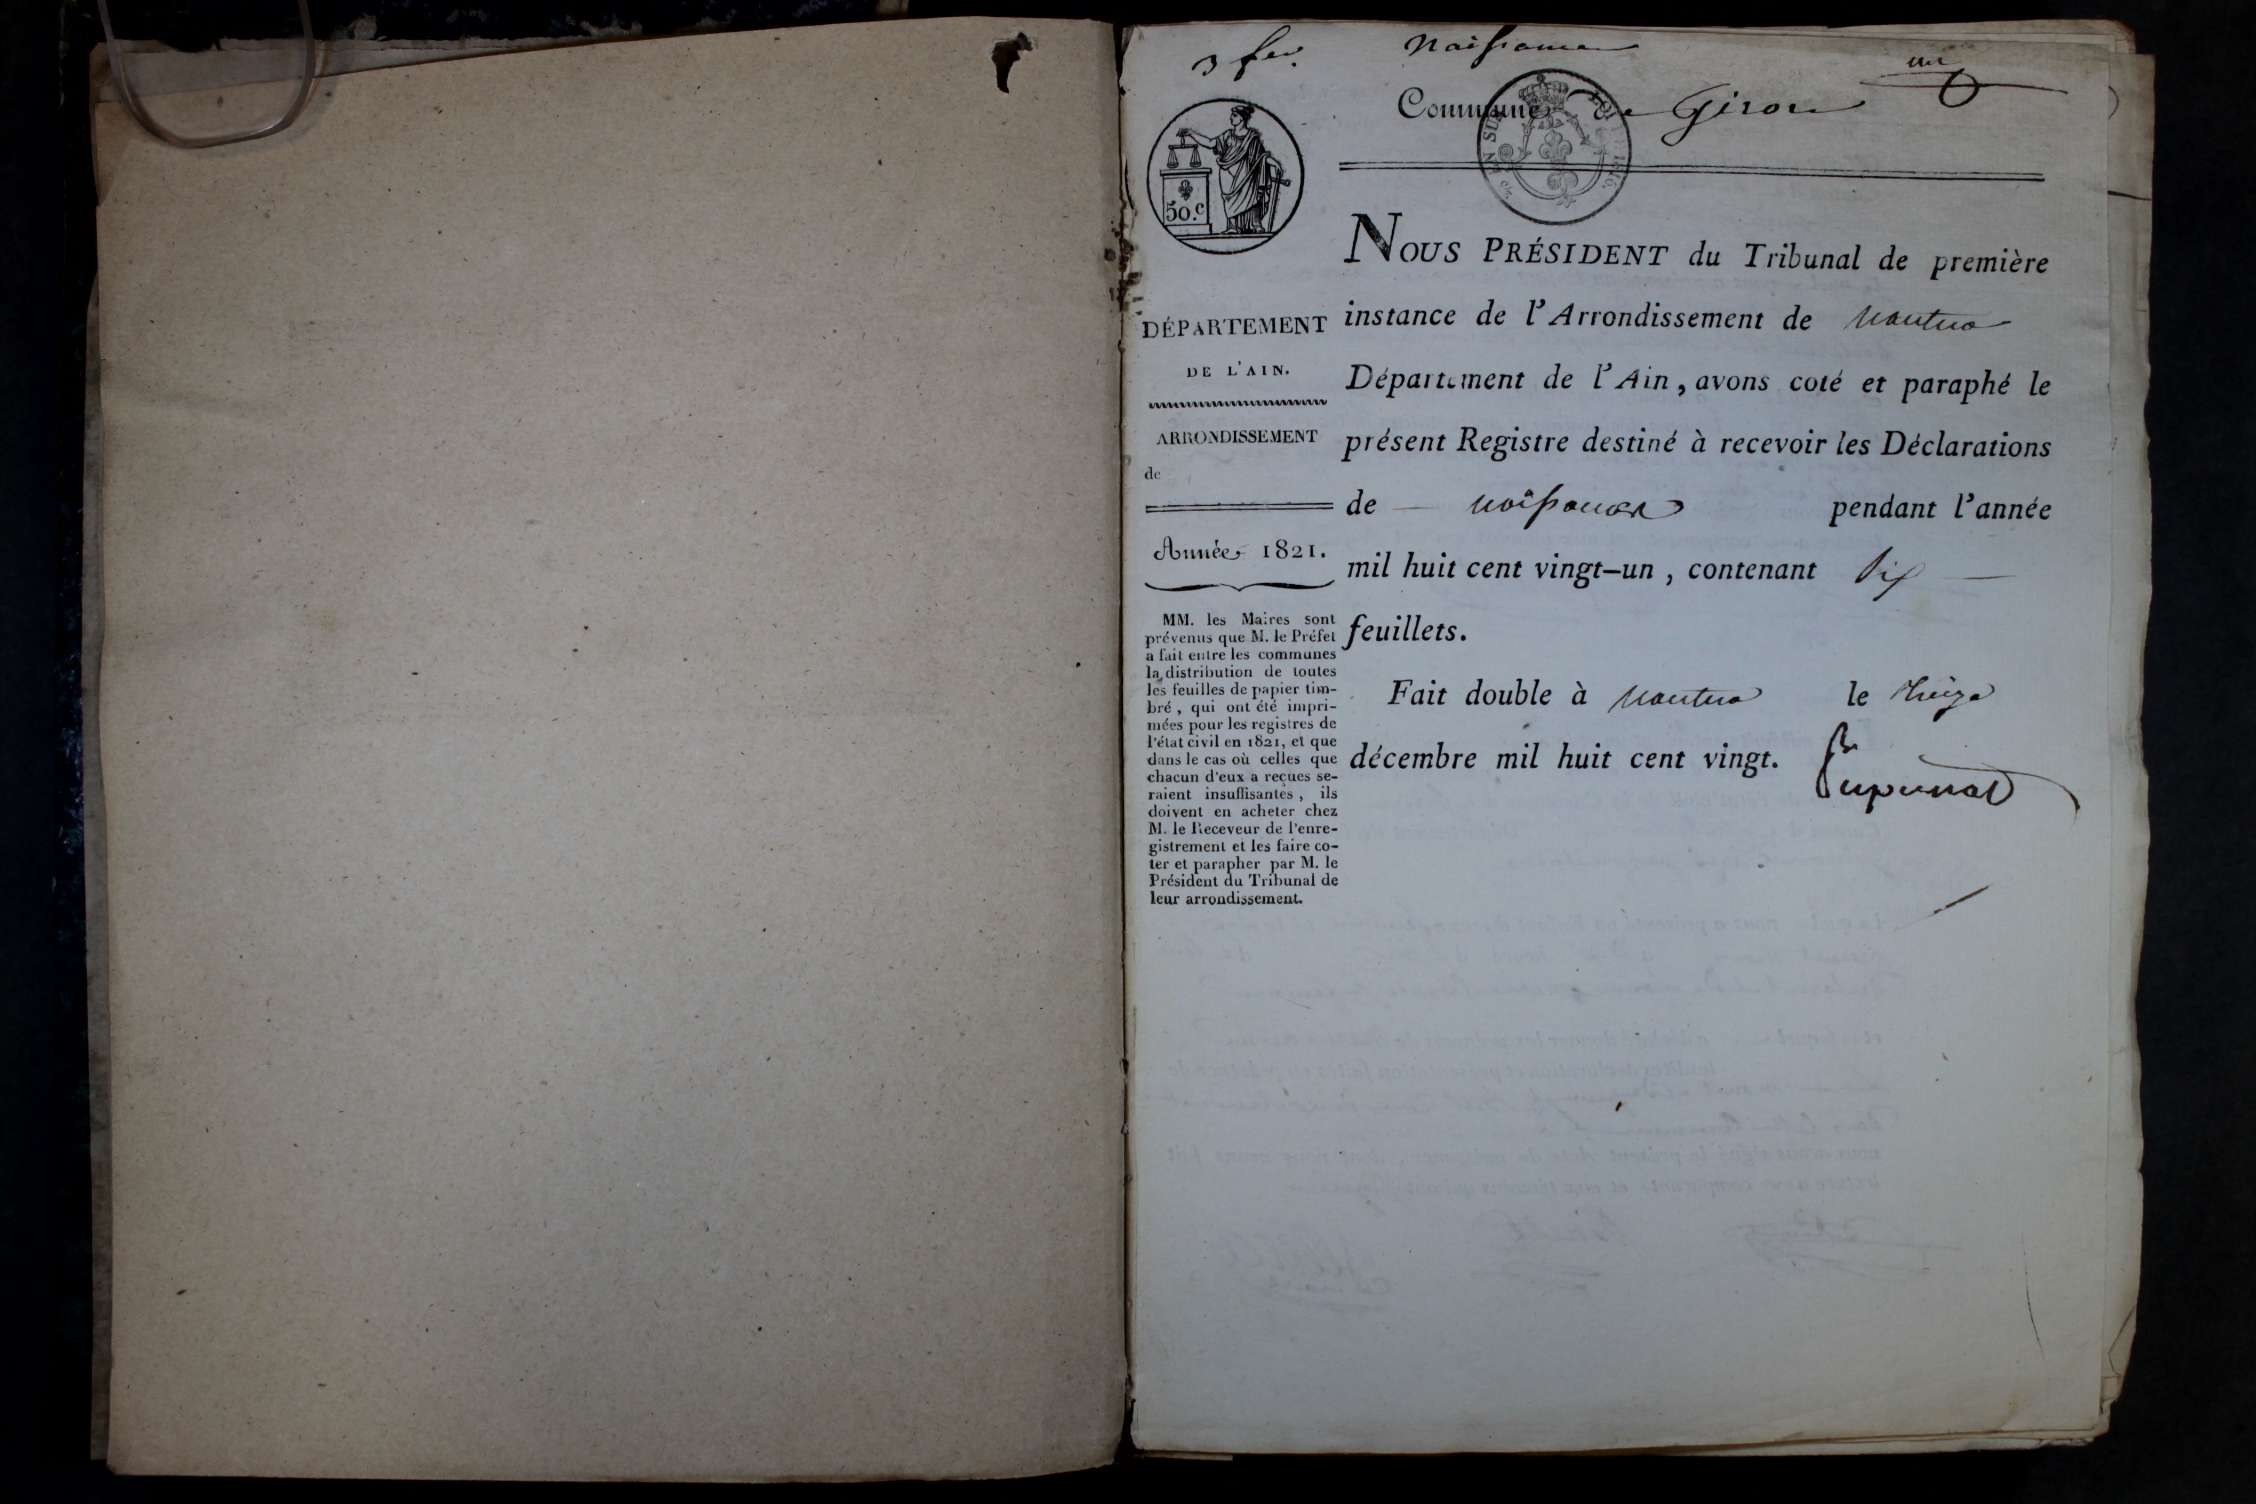 3 fev. Naissance
un
Commune de Giron
50.c
NOUS PRÉSIDENT du Tribunal de première
instance de l'Arrondissement de Nantua
Département de l'Ain, avons coté et paraphé le
présent Registre destiné à recevoir les Déclarations
de naissances pendant l'année
mil huit cent vingt-un, contenant Six
feuillets.
Fait double à Nantua le treize
décembre mil huit cent vingt.
DÉPARTEMENT
DE L'AIN.
ARRONDISSEMENT
de
Année 1821.
MM. les Maires sont
prévenus que M. le Préfet
a fait entre les communes
la distribution de toutes
les feuilles de papier tim-
bré, qui ont été impri-
mées pour les registres de
l'état civil en 1821, et que
dans le cas où celles que
chacun d'eux a reçues se-
raient insuffisantes, ils
doivent en acheter chez
M. le Receveur de l'enre-
gistrement et les faire co-
ter et parapher par M. le
Président du Tribunal de
leur arrondissement.